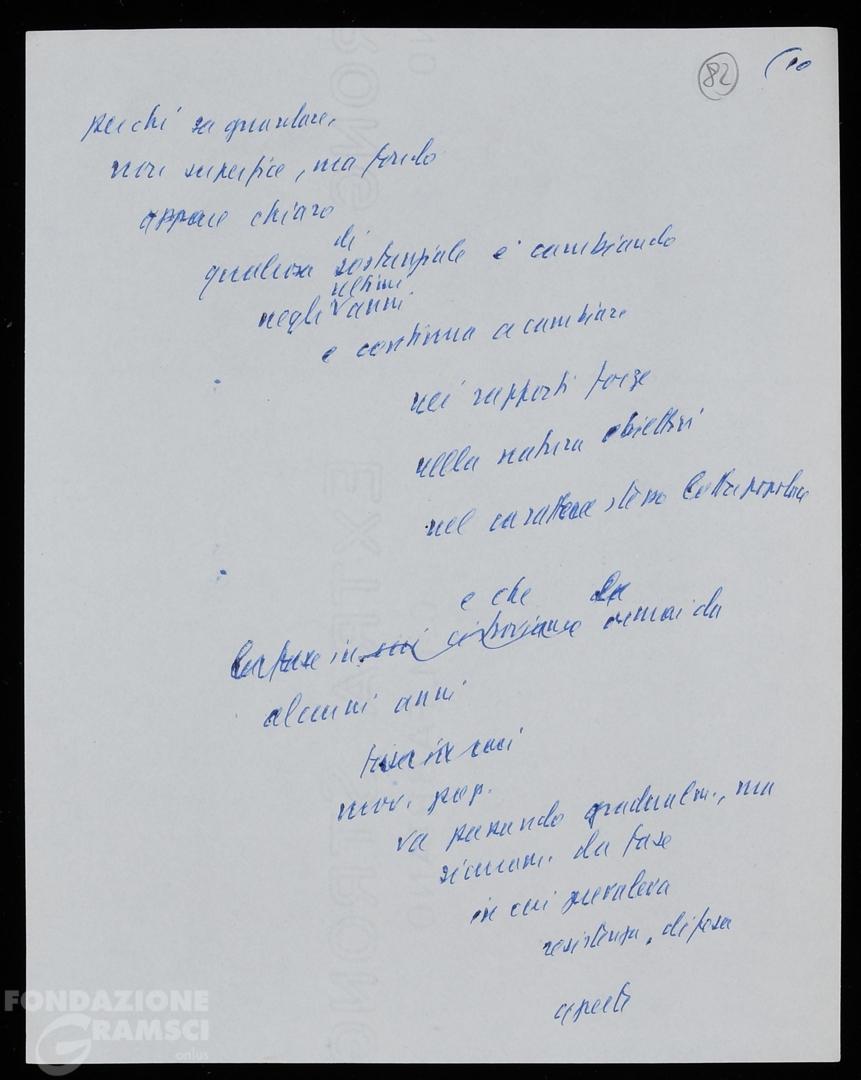 82 (10
per chi sa guardare,
non superfice, ma fondo
appare chiaro
di
qualcosa sostanziale è cambiando
ultimi
negli V anni
e continua a cambiare
nei rapporti forze
nella natura obiettivi
nel carattere stesso lotta popolare
e che
La fase in cui ci troviamo ormai da
alcuni anni
fase in cui
mov. pop.
va passando gradualm., ma
sicuram. da fase
in cui prevaleva
resistenza, difesa
aperta
FONDAZIONE
GRAMSCI
onlus